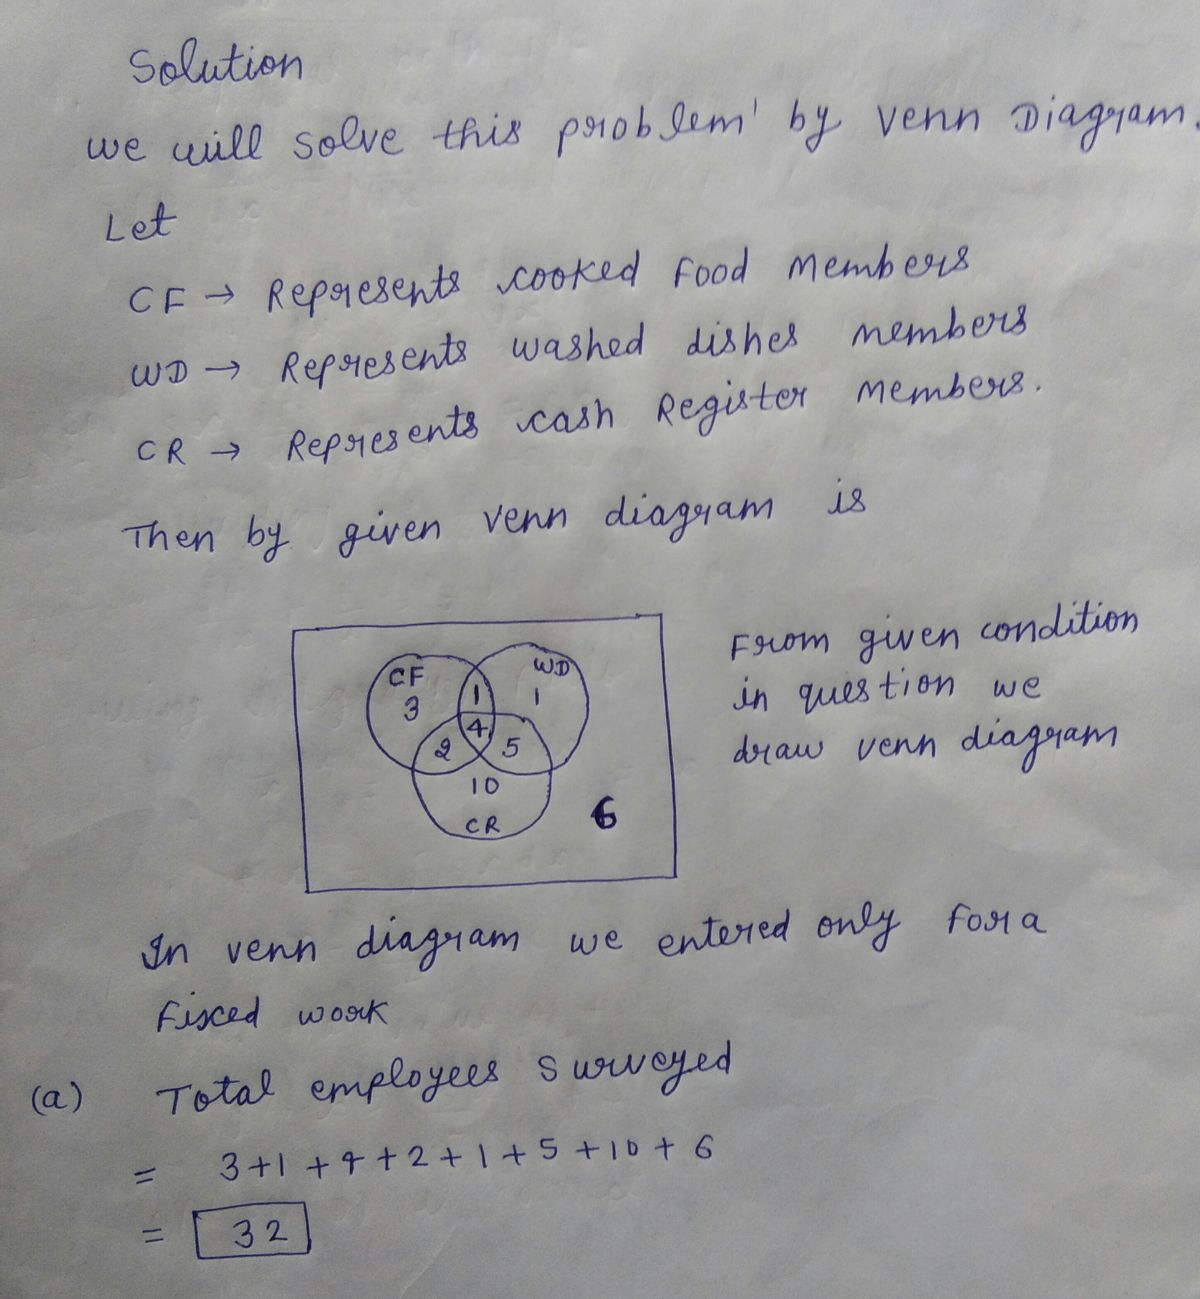 Solution
We will solve this problem by Venn Diagram.
Let
CF → Represents cooked Food Members
WD → Represents washed dishes members
CR → Represents cash Register Members.
Then by given Venn diagram is
From given condition
in question we
draw venn diagram
CF
WD
3
1
1
4
2
5
10
CR
6
In venn diagram we entered only for a
fixed work
(a) Total employees surveyed
= 3+1+4+2+1+5+10+6
= 32